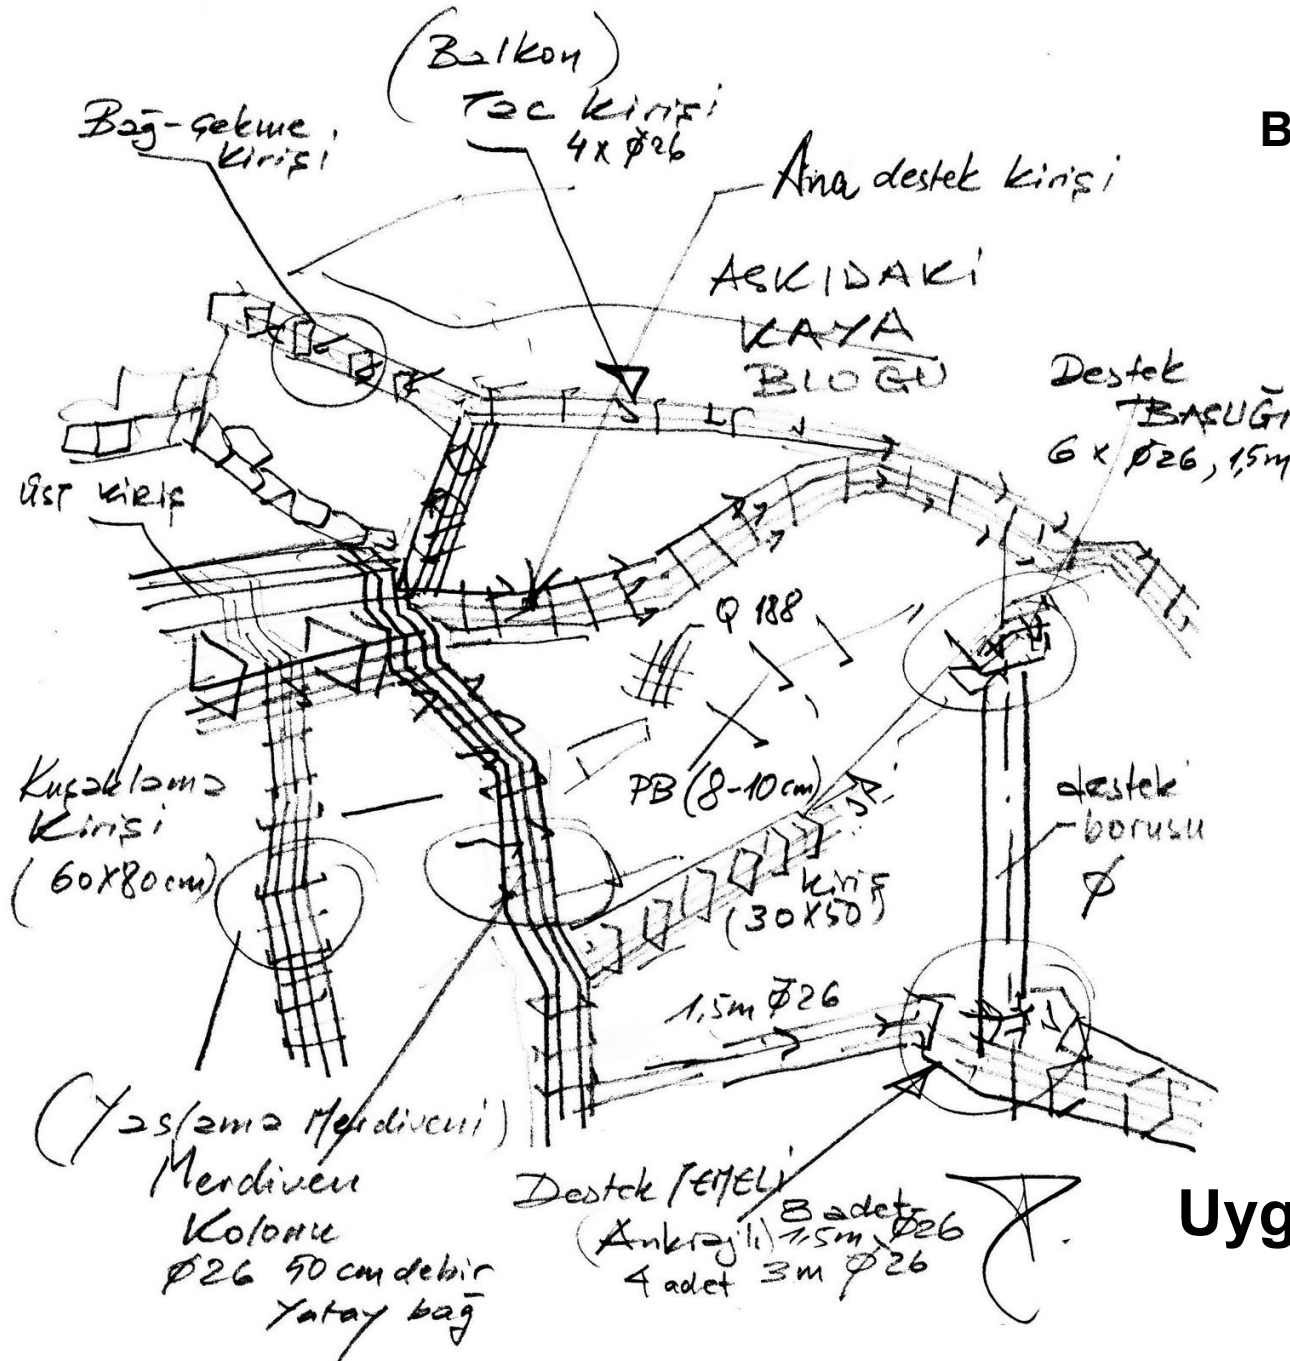 (Balkon)
Tac kirişi
4 x Ø26
B
Bağ-çekme
kirişi
Ana destek kirişi
ASKIDAKİ
KAYA
BLOĞU
Destek
BAŞLIĞI
6 x Ø26, 1,5m
ÜST KİRİŞ
Q 188
Kuşaklama
Kirişi
(60x80cm)
PB (8-10cm)
destek
borusu
Ø
kiriş
(30x50)
1,5m Ø26
(Yaslama Merdiveni)
Merdiven
Kolonu
Ø26 50 cm de bir
Yatay bağ
Destek TEMELİ
(Ankrajlı) 8 adet
1,5m Ø26
4 adet 3m Ø26
Uyg